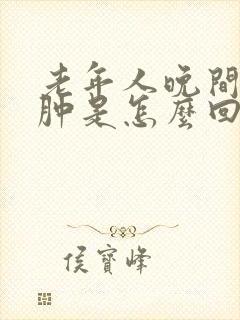 老年人晚間
肿是怎麼回
侯寶峰